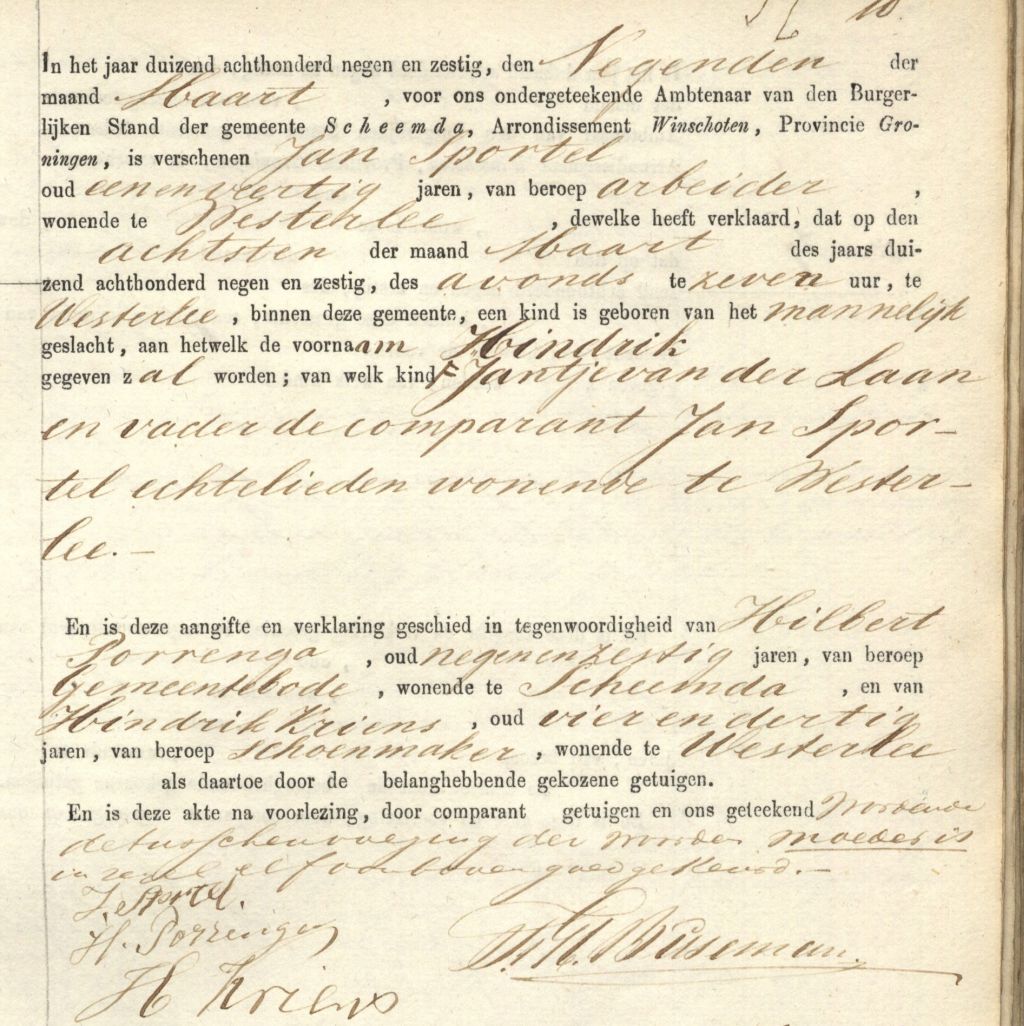 10.
In het jaar duizend achthonderd negen en zestig, den Negenden der
maand Maart , voor ons ondergeteekende Ambtenaar van den Burger-
lijken Stand der gemeente Scheemda, Arrondissement Winschoten, Provincie Gro-
ningen, is verschenen Jan Sportel
oud eenenveertig jaren, van beroep arbeider ,
wonende te Westerlee , dewelke heeft verklaard, dat op den
achtsten der maand Maart des jaars dui-
zend achthonderd negen en zestig, des avonds te zeven uur, te
Westerlee , binnen deze gemeente, een kind is geboren van het mannelijk
geslacht, aan hetwelk de voornaam Hindrik
gegeven zal worden; van welk kind Jantje van der Laan
en vader de comparant Jan Spor-
tel echtelieden wonende te Wester-
lee.-
En is deze aangifte en verklaring geschied in tegenwoordigheid van Hilbert
Porrenga , oud negenenzestig jaren, van beroep
Gemeentebode , wonende te Scheemda , en van
Hindrik Kriens , oud vier en dertig
jaren, van beroep schoenmaker , wonende te Westerlee
als daartoe door de belanghebbende gekozene getuigen.
En is deze akte na voorlezing, door comparant getuigen en ons geteekend Wordende
de tusschenvoeging der woorden moeder is
in regel elf van boven goedgekeurd.-
J. Sportel.
H. Porrenga
H Kriens
Buseman.